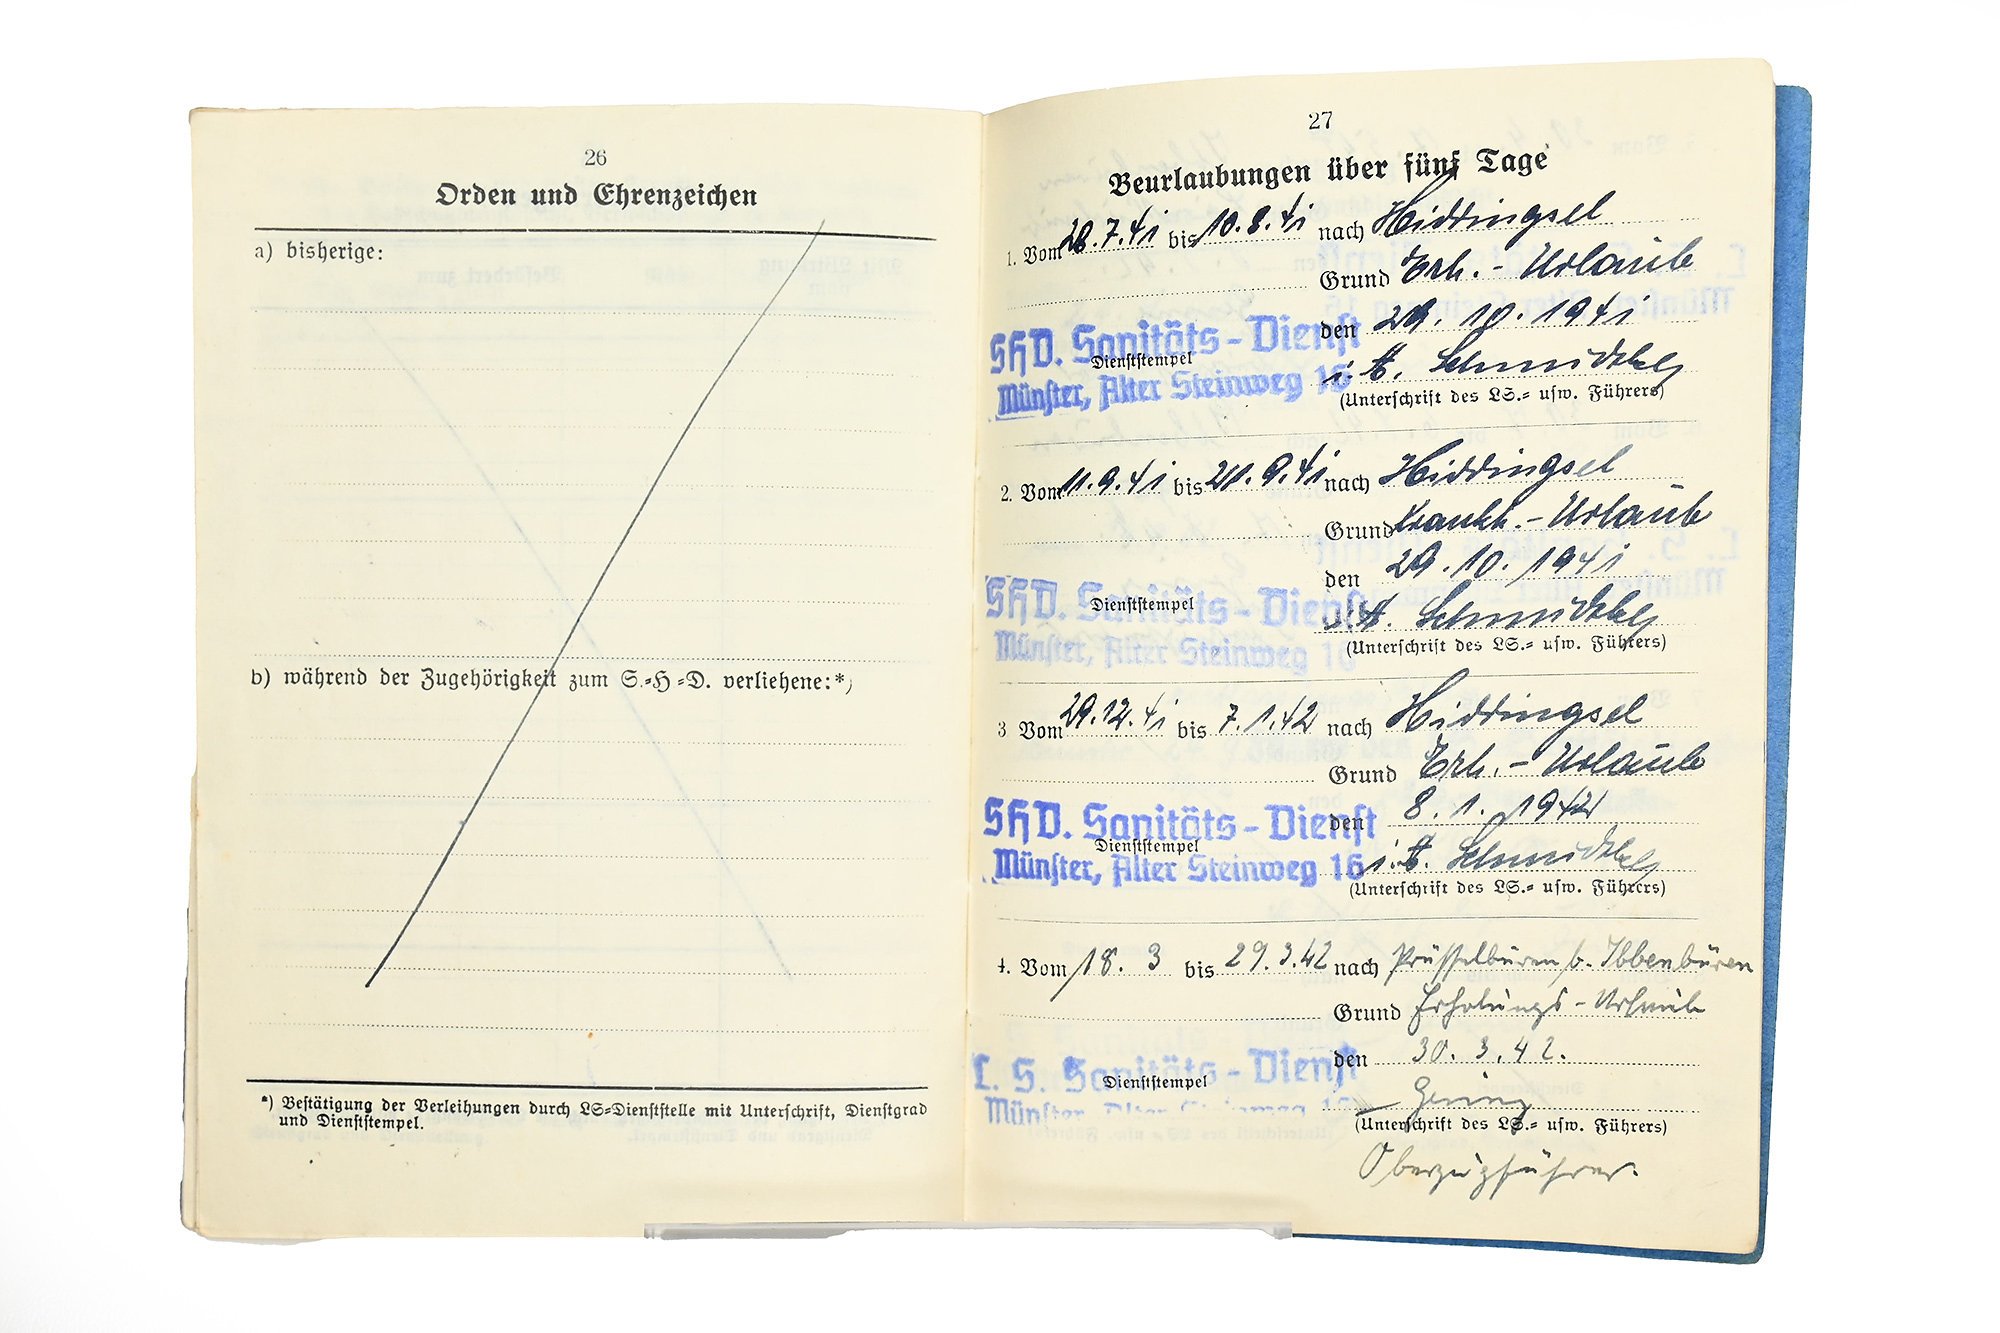 26
Orden und Ehrenzeichen
a) bisherige:
b) während der Zugehörigkeit zum S.=H=D. verliehene:*)
*) Bestätigung der Verleihungen durch LS=Dienststelle mit Unterschrift, Dienstgrad
und Dienststempel.
27
Beurlaubungen über fünf Tage
1. Vom 28.7.41 bis 10.8.41 nach Hiddingsel
Grund Erh.-Urlaub
SHD. Sanitäts-Dienst
den 29.10.1941
Dienststempel
Münster, Alter Steinweg 16
i. A.
(Unterschrift des LS.= usw. Führers)
2. Vom 11.9.41 bis 21.9.41 nach Hiddingsel
Grund Krankh.-Urlaub
den 29.10.1941
SHD. Sanitäts-Dienst
Dienststempel
i. A.
Münster, Alter Steinweg 16
(Unterschrift des LS.= usw. Führers)
3. Vom 29.12.41 bis 7.1.42 nach Hiddingsel
Grund Erh.-Urlaub
den 8.1.1942
SHD. Sanitäts-Dienst
Dienststempel
Münster, Alter Steinweg 16
i. A.
(Unterschrift des LS.= usw. Führers)
4. Vom 18.3 bis 29.3.42 nach Püsselbüren b. Ibbenbüren
Grund Erholungs-Urlaub
den 30.3.42.
L. S. Sanitäts-Dienst
Dienststempel
Münster, Alter Steinweg 16
(Unterschrift des LS.= usw. Führers)
Oberzugführer.